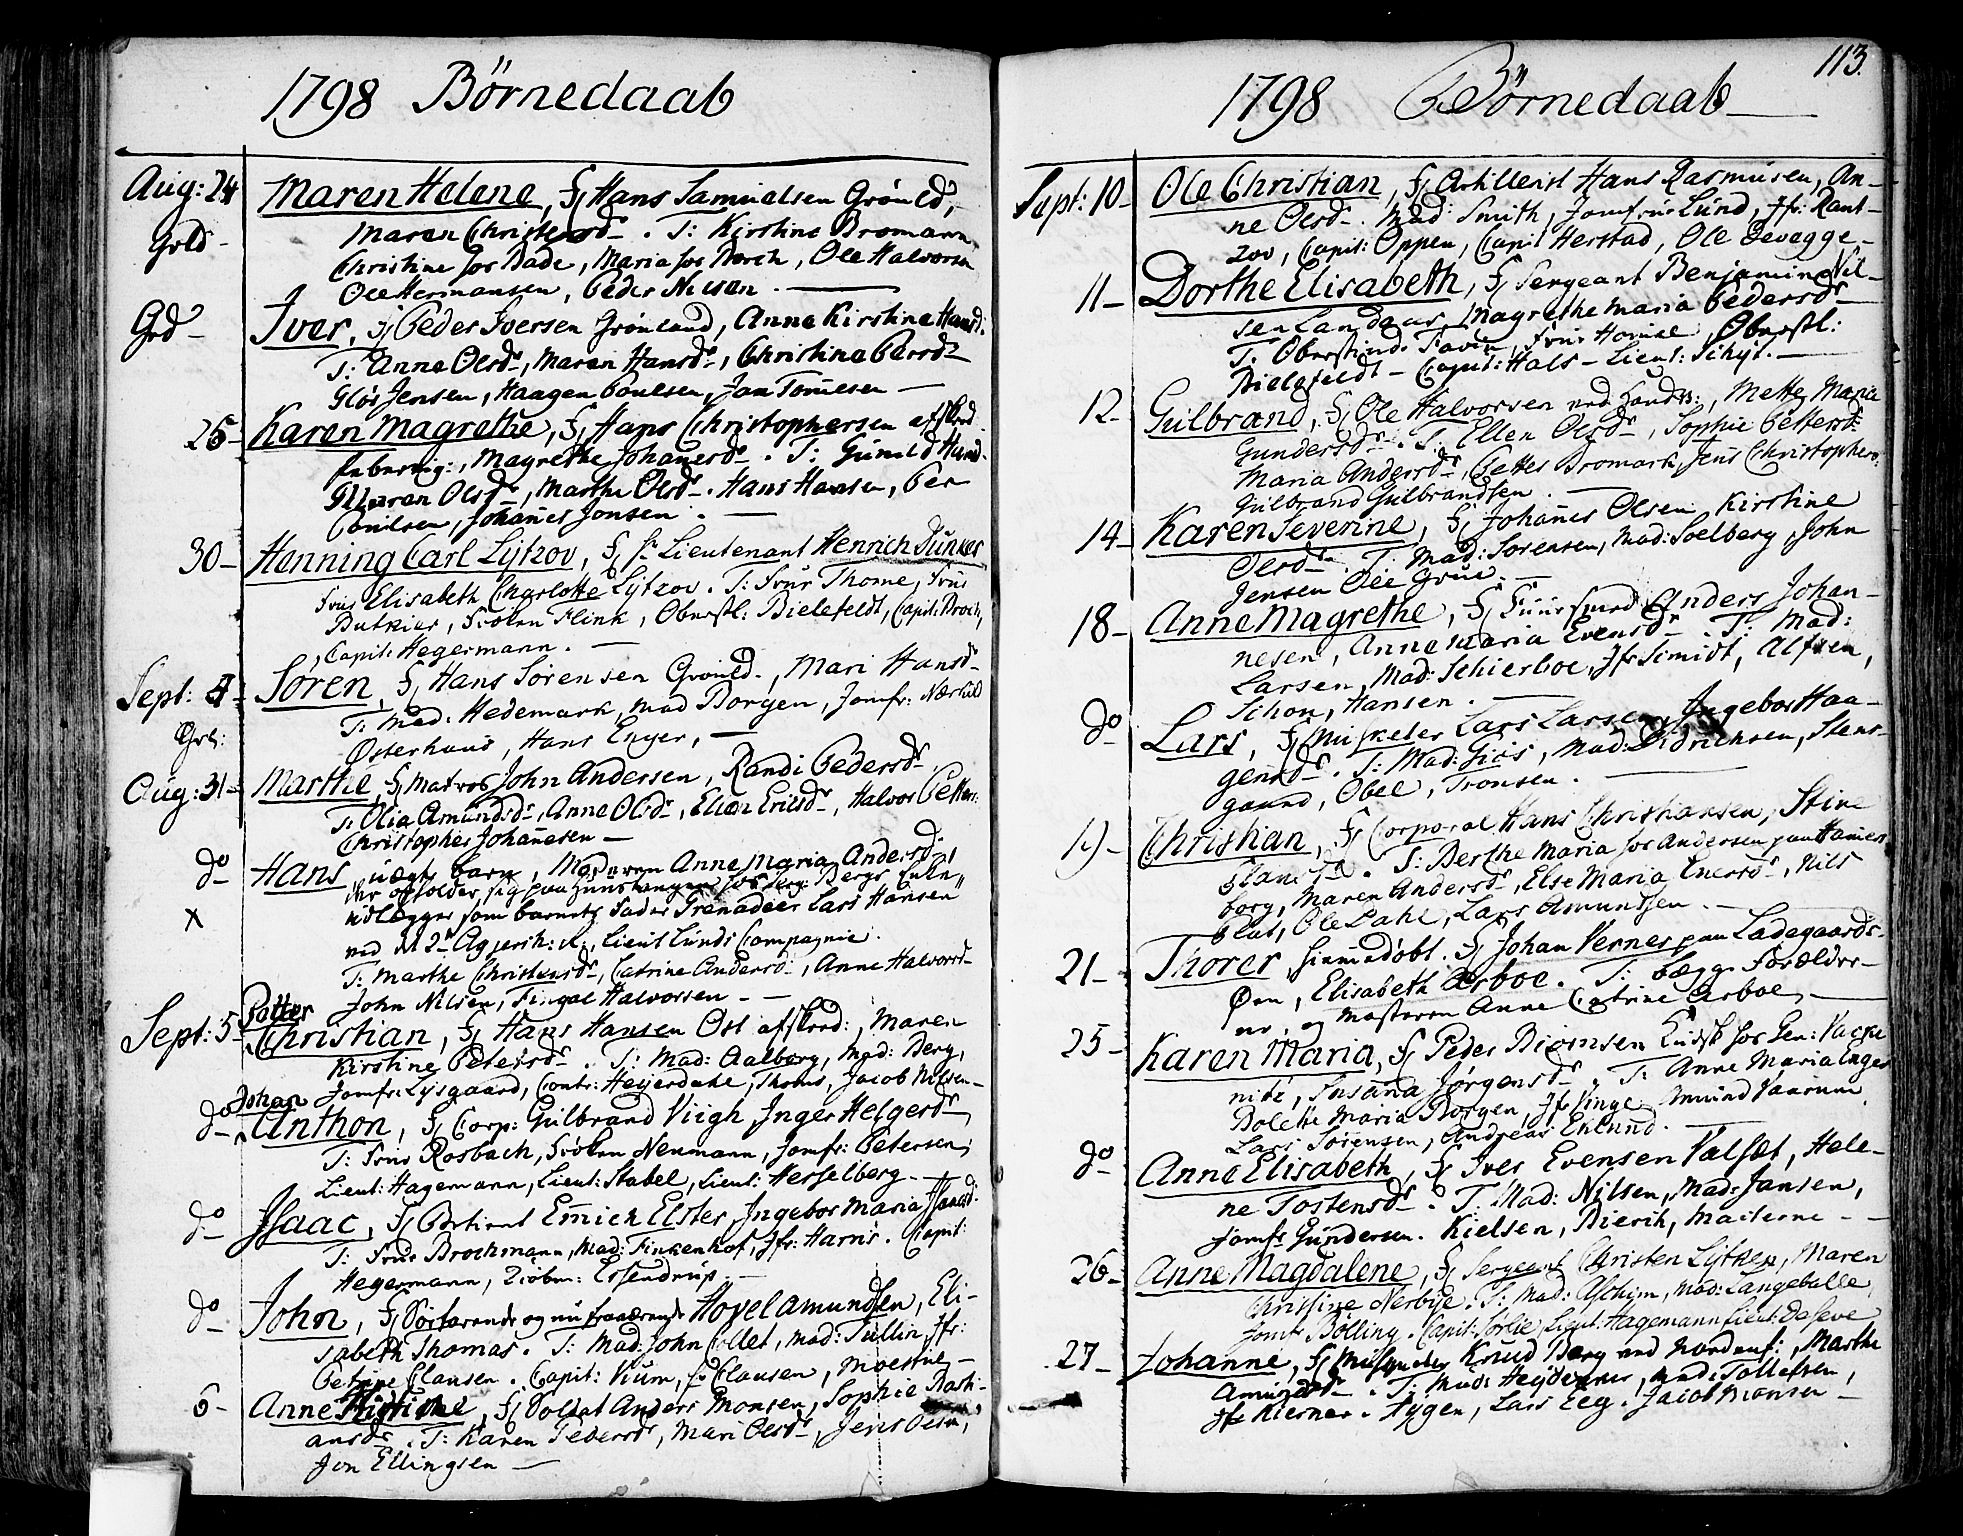 1798 Börnedaab
Aug: 24 Maren Helene, F, Hans Samuelsen Grönld,
Grld Maren Christensd. T: Kirstine Bromann
Christine hos Bade, Maria hos Borch, Ole Halvorsen
Ole Hermansen, Peder Nilsen.
Grd Iver, F, Peder Iversen Grönland, Anne Kirstine Hansd:
T: Anne Olsd, Maren Hansd, Christine Persd
Jensen, Haagen Poulsen, Jan
25 Karen Magrethe, F, Hans Christophersen afsked
Magrethe Johanesd. T: Gunild Hansd.
Maren Olsd, Marthe Olsd. Hans Hansen, Per
Poulsen, Johanes Jonsen.
30 Henning Carl Lytzov, F, Lieutenant Henrich Dunker
Frue Elisabeth Charlotte Lytzov. T: Frue Thome, Frue
Butkier, Fröken Flink, Oberstl: Bielefeldt, Capit: Broch,
Capit: Hegermann.
Sept: 4 Sören, F, Hans Sörensen Grönld., Mari Hansd
Grl: T: Mad. Hedemark, Mad Borgen, Jomfr:
Österhaus, Hans Enger,
Aug: 31 Marthe, F, Matros John Andersen, Randi Pedersd
T: Olia Amundsd, Anne Olsd, Ellen Erilsd, Halvor Petters:
Christopher Johanesen
do Hans uægte barn, Moderen Anne Maria Andersd.
der opholder sig paa hos Berg
x udlægger som barnets Fader Grenadeer Lars Hansen
ved d 2 Aggersh: R:, Lieut Lunds Compagnie.
T: Marthe Christensd, Catrine Andersd, Anne Halvorsd
John Nilsen, Fingal Halvorsen
Petter
Sept: 5 Christian, F, Hans Hansen Ost afskед:, Maren
Kirstine Petersd. T: Mad: Aalborg, Mad: Berg,
Jomfr: Lysgaard, Contr: Heyerdahl, Thoms, Jacob Nilsen
Johan
do Anthon, F, Corp: Gulbrand Viigh, Inger Helgersd
T: Frue Rosbach, Fröken Neumann, Jomfr: Petersen,
Lieut: Hagemann, Lieut: Stabel, Lieut: Hesselberg
do Isaac, F, Emich Elster, Ingebor Maria Isaacsd:
T: Frue Brochmann, Mad: Finkenhof, Jfr: Harris. Capit:
Hegermann, Essendrup
do John, F, og nu fraværende Hövel Amundsen, Eli-
sabeth Thomas. T: Mad: John Collet, Mad: Tullin, Jfr:
Petrine Clausen. Capit: Wium, Clausen, Moestue
6 Anne, F, Soldat Anders Monsen, Sophie Basti-
ansd. T: Karen Pedersd, Mari Olsd, Jens Olsen,
Jon Ellingsen
113.
1798 Börnedaab
Sept: 10 Ole Christian, F, Artillerist Hans Rasmusen, An-
ne Olsd. Mad: Smith, Jomfrue Lund, Jfr: Rant-
zov, Capit: Oppen, Capit Herstad, Ole
11 Dorthe Elisabeth, F, Sergeant Benjamin Nil-
sen Landaas, Magrethe Maria Pedersd
T: Frue Oberstl:
Bielefeldt Capit: Hals Lieut: Schyt.
12 Gulbrand, F, Ole Halvorsen ved, Mette Maria
Gundersd. T: Ellen Olsd, Sophie Pettersd
Maria Andersd, Petter Bromark, Jens Christophers:
Gulbrand Gulbrandsen.
14 Karen Severine, F, Johanes Olsen Kirstine
Olsd. T: Mad: Sorensen, Mad: Soelberg, John
Jensen Ole Grue.
18 Anne Magrethe, F, Anders Johan-
nesen, Anne Maria Evensd. T: Mad:
Larsen, Mad: Schierboe, Jfr Smidt, Alfsen,
Schou, Hansen.
do Lars, F, Musketer Lars Larsen, Ingebor Haa-
gensd. T: Mad: Giös, Mad: Didrichsen, Stens-
gaard, Obel, Tronsen.
19 Christian, F, Corporal Hans Christiansen, Stine
T: Berthe Maria hos Andersen paa Hamers
borg, Maren Andersd, Else Maria Enersd, Nils
Ole Dahl, Lars Amundsen.
21 Thorer, hiemedöbt. F, Johan Verner paa Ladegaards-
Öen, Elisabeth Arboe. T: begge Forældre-
ne, og Mosteren Anne Catrine Arboe,
25 Karen Maria, F, Peder Biörnsen Kudsk hos Gen: Vacke
nitz, Susana Jörgensd. T: Anne Maria Enger
Bolette Maria Borgen, Jfr Vinge Amund Vaarum,
Lars Sörensen, Andreas Enlund.
do Anne Elisabeth, F, Iver Evensen Valset, Hele-
ne Tostensd. T: Mad: Nilsen, Mad: Jansen,
Jomfr Gundersen. Kielsen, Bierik,
26 Anne Magdalene, F, Sergeant Christen Lytken, Maren
Christine Nerbye. T: Mad: Aschim, Mad: Langeballe,
Jomfr Bölling. Capit: Sörlie, Lieut: Hagemann Lieut: De Seve
27 Johanne, F, Knud Berg ved Nordenf:, Marthe
Amundsd. T: Mad: Heydener, Mad: Tollefsen,
Jfr Kierner. Aygen, Lars Eeg. Jacob Monsen